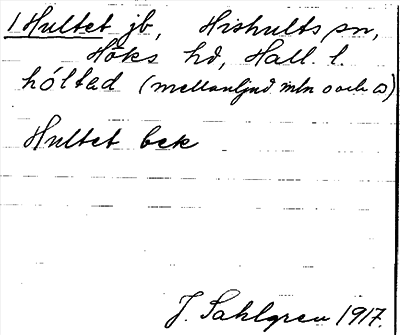 1 Hultet jb, Hishults sn,
Höks hd, Hall. l.
hóltad (mellanljud mln o och ω)
Hultet bek
J. Sahlgren 1917.